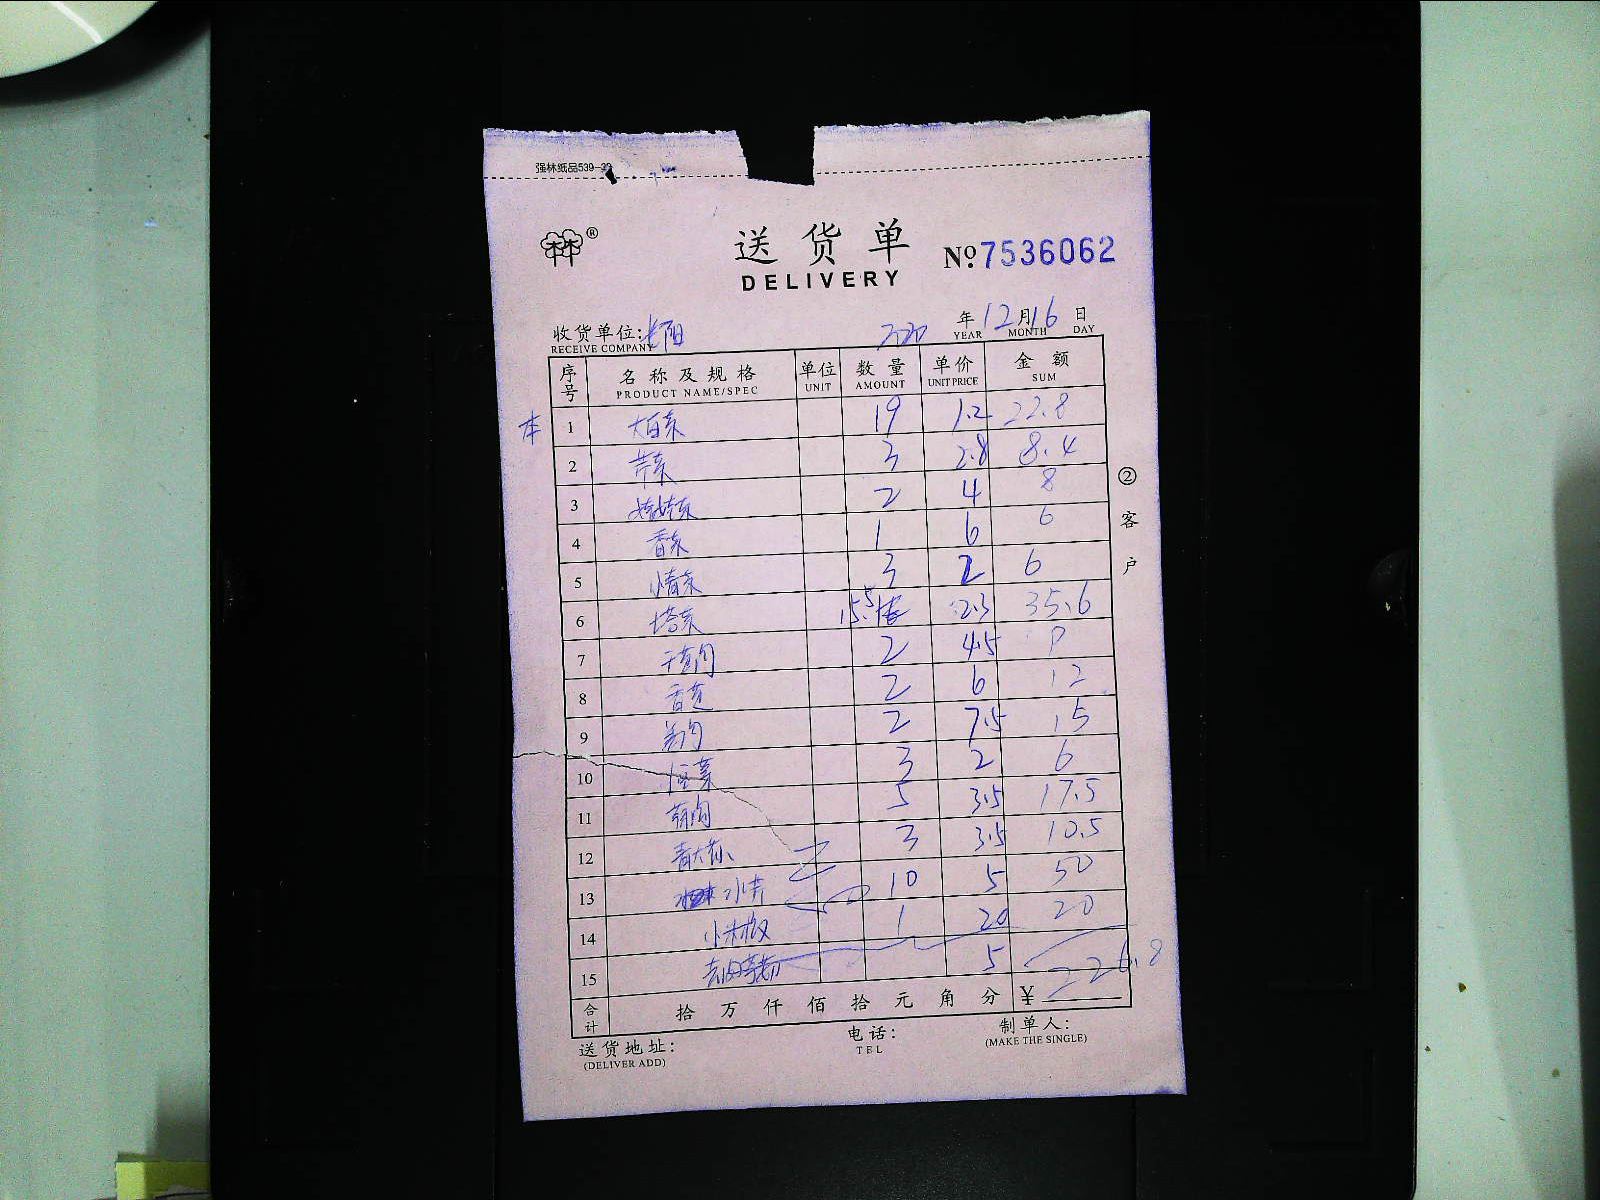 强林纸品539-33
送货单
DELIVERY
№ 7536062
收货单位: 长阳 2020 年 12 月 16 日
RECEIVE COMPANY YEAR MONTH DAY
序号 名称及规格 单位 数量 单价 金额
PRODUCT NAME/SPEC UNIT AMOUNT UNIT PRICE SUM
本 1 大白菜 19 1.2 22.8
2 芹菜 3 2.8 8.4
3 娃娃菜 2 4 8
4 香菜 1 6 6
5 小青菜 3 2 6
6 塔菜 15.5 2.3 35.6
7 2 4.5 9
8 香芝 2 6 12
9 2 7.5 15
10 3 2 6
11 5 3.5 17.5
12 青大椒 3 3.5 10.5
13 水芹 10 5 50
14 小米椒 1 20 20
15 5
合计 拾 万 仟 佰 拾 元 角 分 ¥ 226.8
② 客户
送货地址: 电话: 制单人:
(DELIVER ADD) TEL (MAKE THE SINGLE)